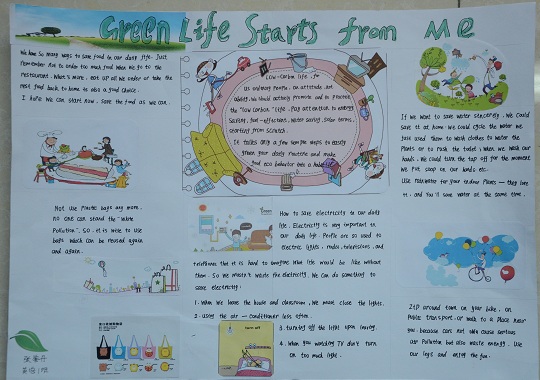 Green Life Starts from Me
We have so many ways to save food in our daily life. Just
remember not to order too much food when we go to the
restaurant. What's more, eat up all we order or take the
rest food back to home is also a good choice.
I hope we can start now, save the food as we can.
Low-carbon life, for
us ordinary people, an attitude, not
ability. We should actively promote and to practice
the "low carbon" life. Pay attention to energy
saving, fuel-effections, water saving, solar terms,
starting from scratch.
It takes only a few simple steps to easily
green your daily routine and make
and eco behavior into a habit.
If we want to save water sincerely, we could
save it at home. We could cycle the water we
just used them to wash clothes to water the
plants or to rush the toilet. When we wash our
hands, we could turn the tap off for the moment
we put soap on our hands etc.
Use rainwater for your indoor plants — they love
it, and you'll save water at the same time.
Not use plastic bags any more.
no one can stand the "white
pollution". So, it is wise to use
bags which can be reused again
and again.
How to save electricity in our daily
life. Electricity is very important in
our daily life. People are so used to
electric lights, radios, televisions, and
telephones that it is hard to imagine what life would be like without
them. So we mustn't waste the electricity. We can do something to
save electricity:
1. When we leave the house and classroom, we must close the lights.
2. using the air — conditioner less often.
3. turning off the light upon leaving.
4. When you watching TV don't turn
on too much light.
turn off
Zip around town on your bike, on
public transport, or walk to a place near
you, because cars not only cause serious
air pollution but also waste energy. Use
our legs and enjoy the fun.